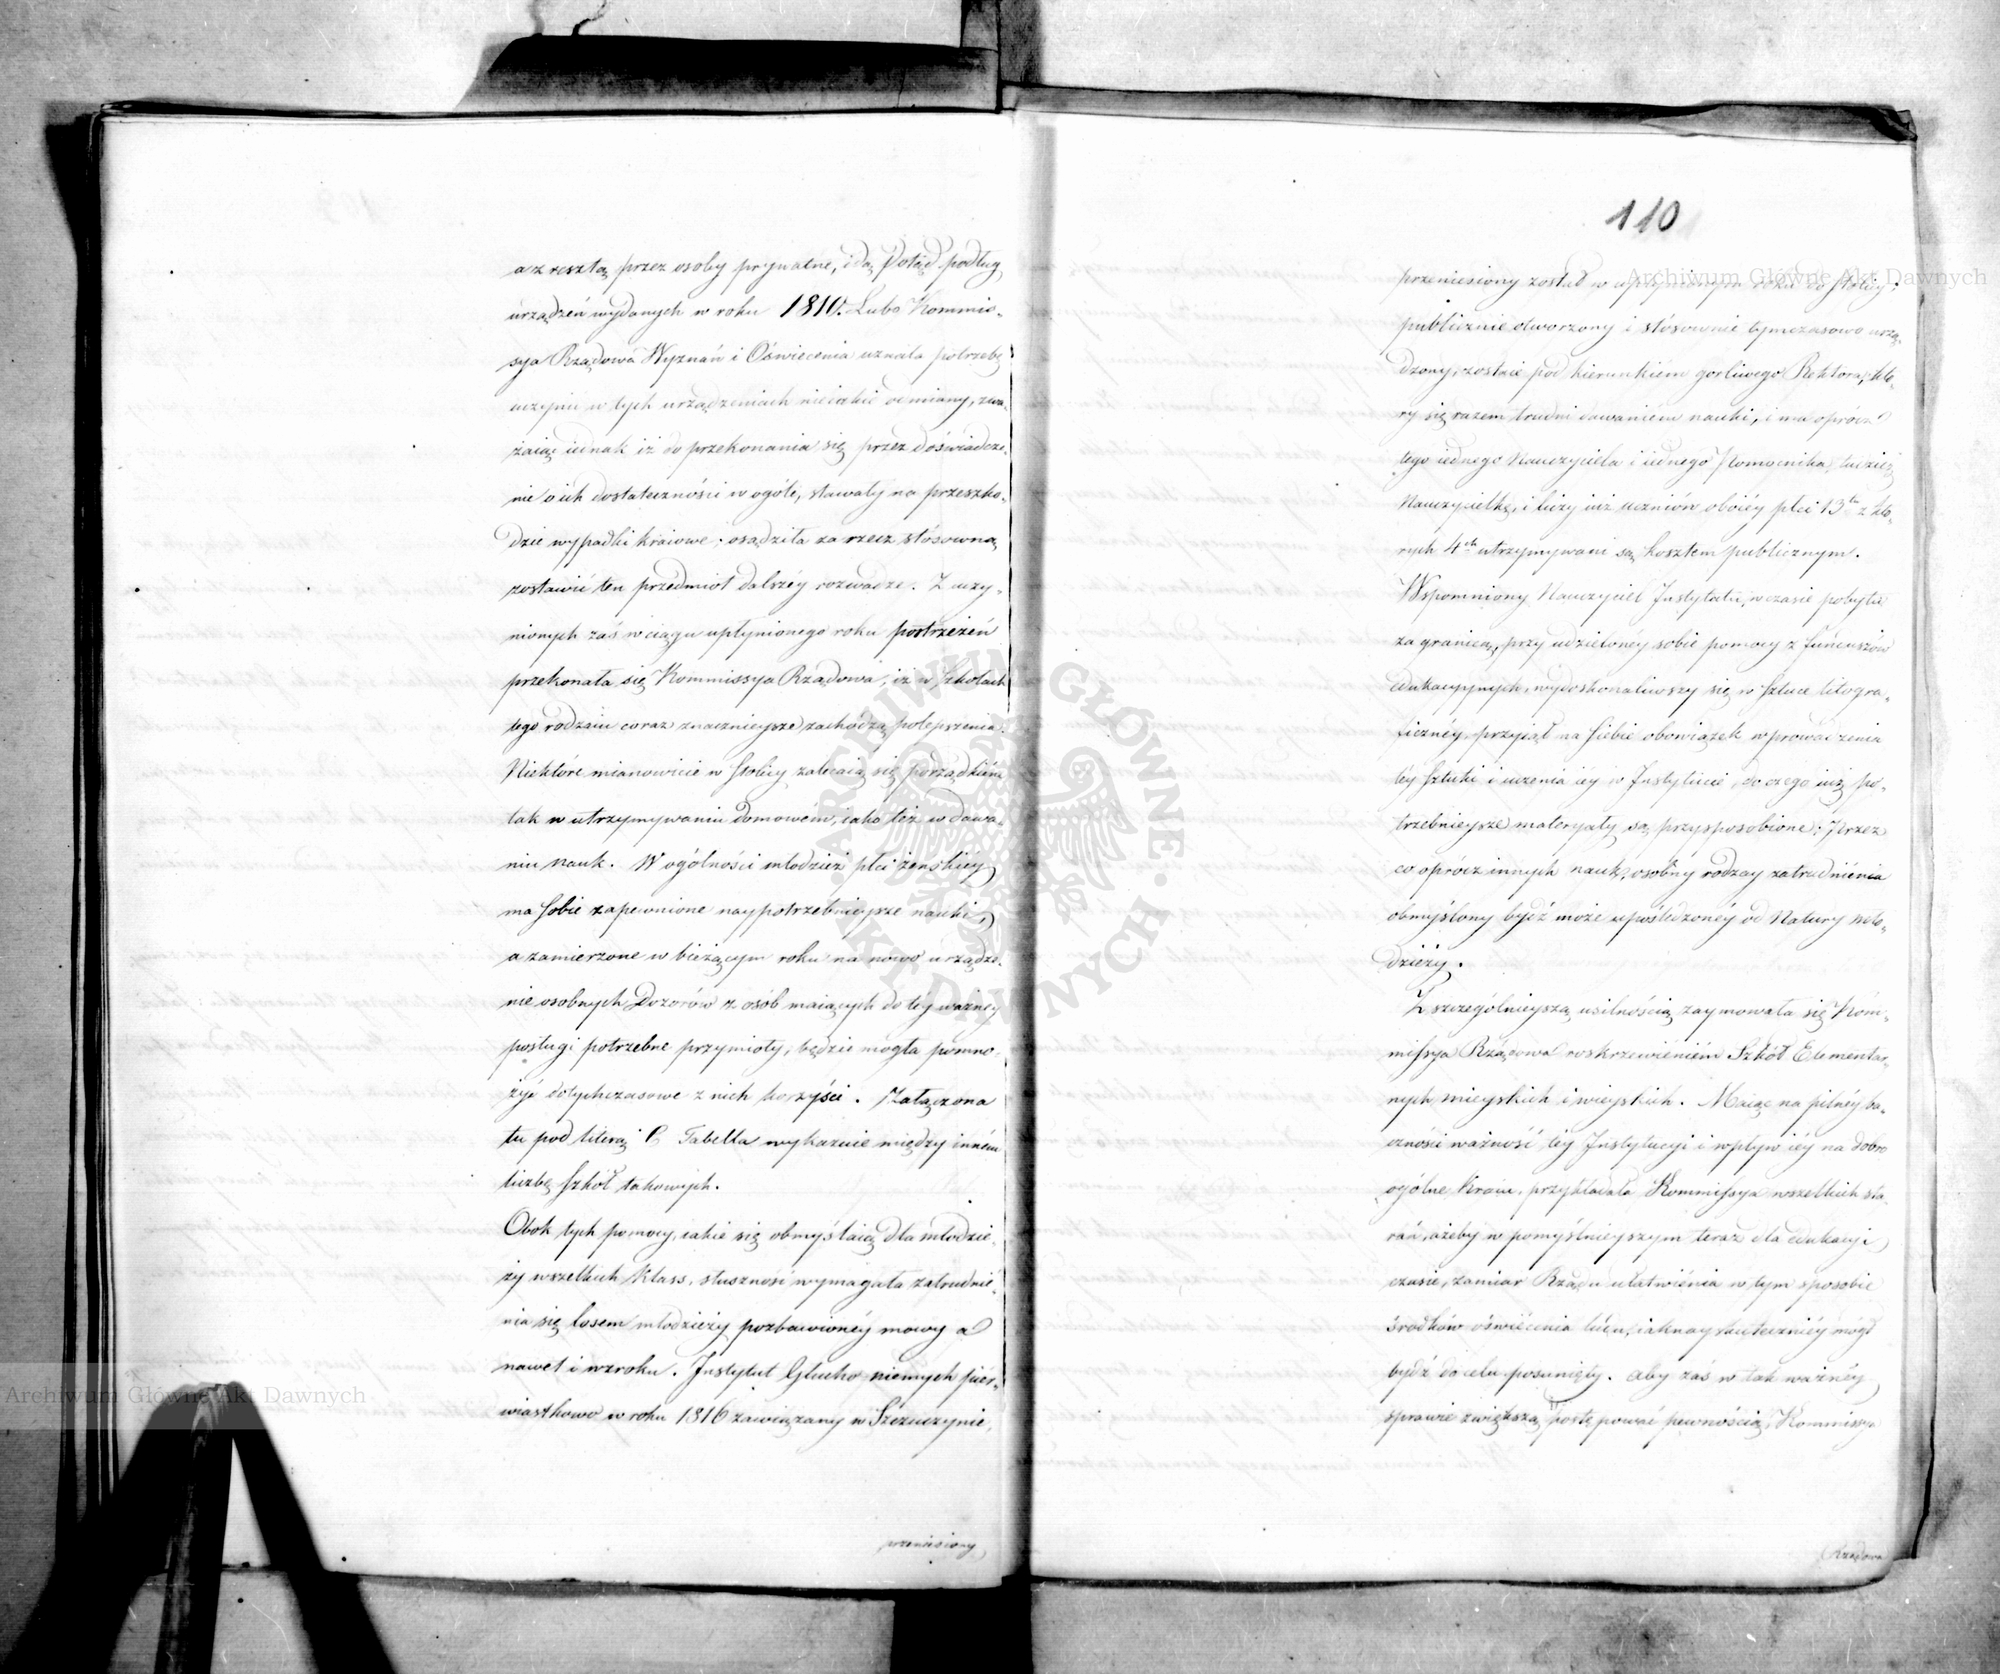 a z resztą przez osoby prywatne, idą Potąd podług
urządzeń wydanych w roku 1810. Lubo Kommis-
sya Rządowa Wyznań i Oświecenia uznała potrzebę
uczynić w tych urządzeniach nieiakie odmiany, zwa-
żaiąc iednak iż do przekonania się przez doświadcze-
nie o ich dostateczności w ogóle, stawały na przeszko-
dzie wypadki kraiowe; osądziła za rzecz stósowną
zostawić ten przedmiot dalszéy rozwadze. Z uczy-
nionych zaś w ciągu upłynionego roku postrzeżeń
przekonała się Kommissya Rządowa, iż w Szkołach
tego rodzaiu coraz znacznieysze zachodzą polepszenia.
Niektóre mianowicie w Stolicy zalecaią się porządkiem
tak w utrzymywaniu domowém, iako téż w dawa-
niu nauk. W ogólności młodzież płci żeńskiéy
ma sobie zapewnione naypotrzebnieysze nauki,
a zamierzone w bieżącym roku na nowo urządze-
nie osobnych Dozorów z osób maiących do téy ważnéy
posługi potrzebne przymioty, będzie mogła pomno-
żyć dotychczasowe z nich korzyści. Załączona
tu pod literą C Tabella wykazuie między inném
liczbę Szkół takowych.
Obok tych pomocy, iakie się obmyślaią dla młodzie-
ży wszelkich klass, słuszność wymagała zatrudnié-
nia się losem młodzieży pozbawionéy mowy a
nawet i wzroku. Instytut Głucho niemych pier-
wiastkowo w roku 1816 zawiązany w Szczuczynie,
przeniesiony
110
przeniesiony został w upłynionym roku do Stolicy;
publicznie otworzony i stósownie tymczasowo urzą-
dzony, zostaie pod kierunkiem gorliwego Rektora, któ-
ry się razem trudni dawaniem nauki, i ma oprócz
tego iednego Nauczyciela i iednego Pomocnika, tudzież
Nauczycielkę, i liczy iuż uczniów oboiéy płci 13tu z któ-
rych 4ch utrzymywani są kosztem publicznym.
Wspomniony Nauczyciel Instytutu, w czasie pobytu
za granicą, przy udzielonéy sobie pomocy z funduszów
edukacyynych, wydoskonaliwszy się w Sztuce litogra-
ficznéy, przyiął na siebie obowiązek wprowadzenia
téy Sztuki i uczenia iéy w Instytucie, do czego iuż po-
trzebnieysze materyały są przysposobione; Przez
co oprócz innych nauk, osobny rodzay zatrudniénia
obmyślony bydź może upośledzonéy od Natury mło-
dzieży.
Z szczególnieyszą usilnością zaymowała się Kom-
missya Rządowa roskrzewiéniém Szkół Elementar-
nych mieyskich i wieyskich. Maiąc na pilnéy ba-
czności ważność téy Instytucyi i wpływ iéy na dobro
ogólne kraiu, przykładała Kommissya wszelkich sta-
rań, ażeby w pomyślnieyszym teraz dla edukacyi
czasie, zamiar Rządu ułatwiénia w tym sposobie
środków oświécenia ludu, iaknayskuteczniéy mógł
bydź do celu posunięty. Aby zaś w tak ważnéy
sprawie z większą postępować pewnością, Kommissya
Rządowa
Archiwum Główne Akt Dawnych
Archiwum Główne Akt Dawnych
ARCHIWUM GŁÓWNE AKT DAWNYCH